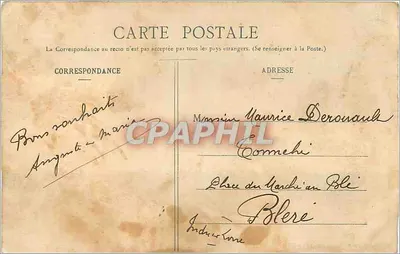 CARTE POSTALE
La Correspondance au recto n'est pas acceptée par tous les pays étrangers. (Se renseigner à la Poste.)
CORRESPONDANCE
ADRESSE
Bons souhaits
Auguste Marie
CPAPHIL
Monsieur Maurice Derouault
Place du Marché au Blé
Bléré
Indre et Loire